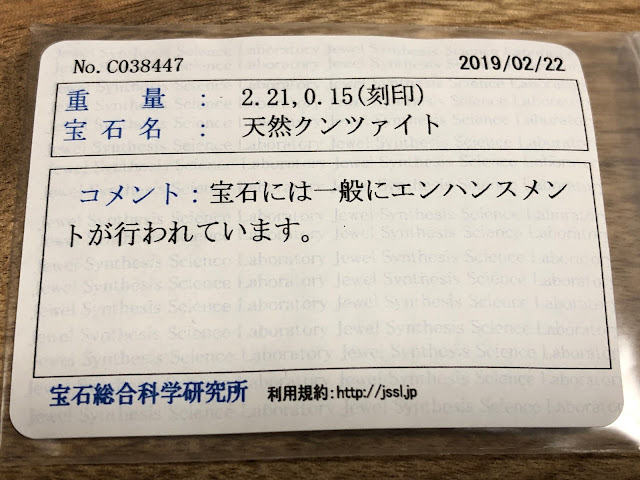 No. C038447 2019/02/22
重量 : 2.21,0.15(刻印)
宝石名 : 天然クンツァイト
コメント:宝石には一般にエンハンスメン
トが行われています。
宝石総合科学研究所 利用規約:http://jssl.jp
Jewel Synthesis Science Laboratory